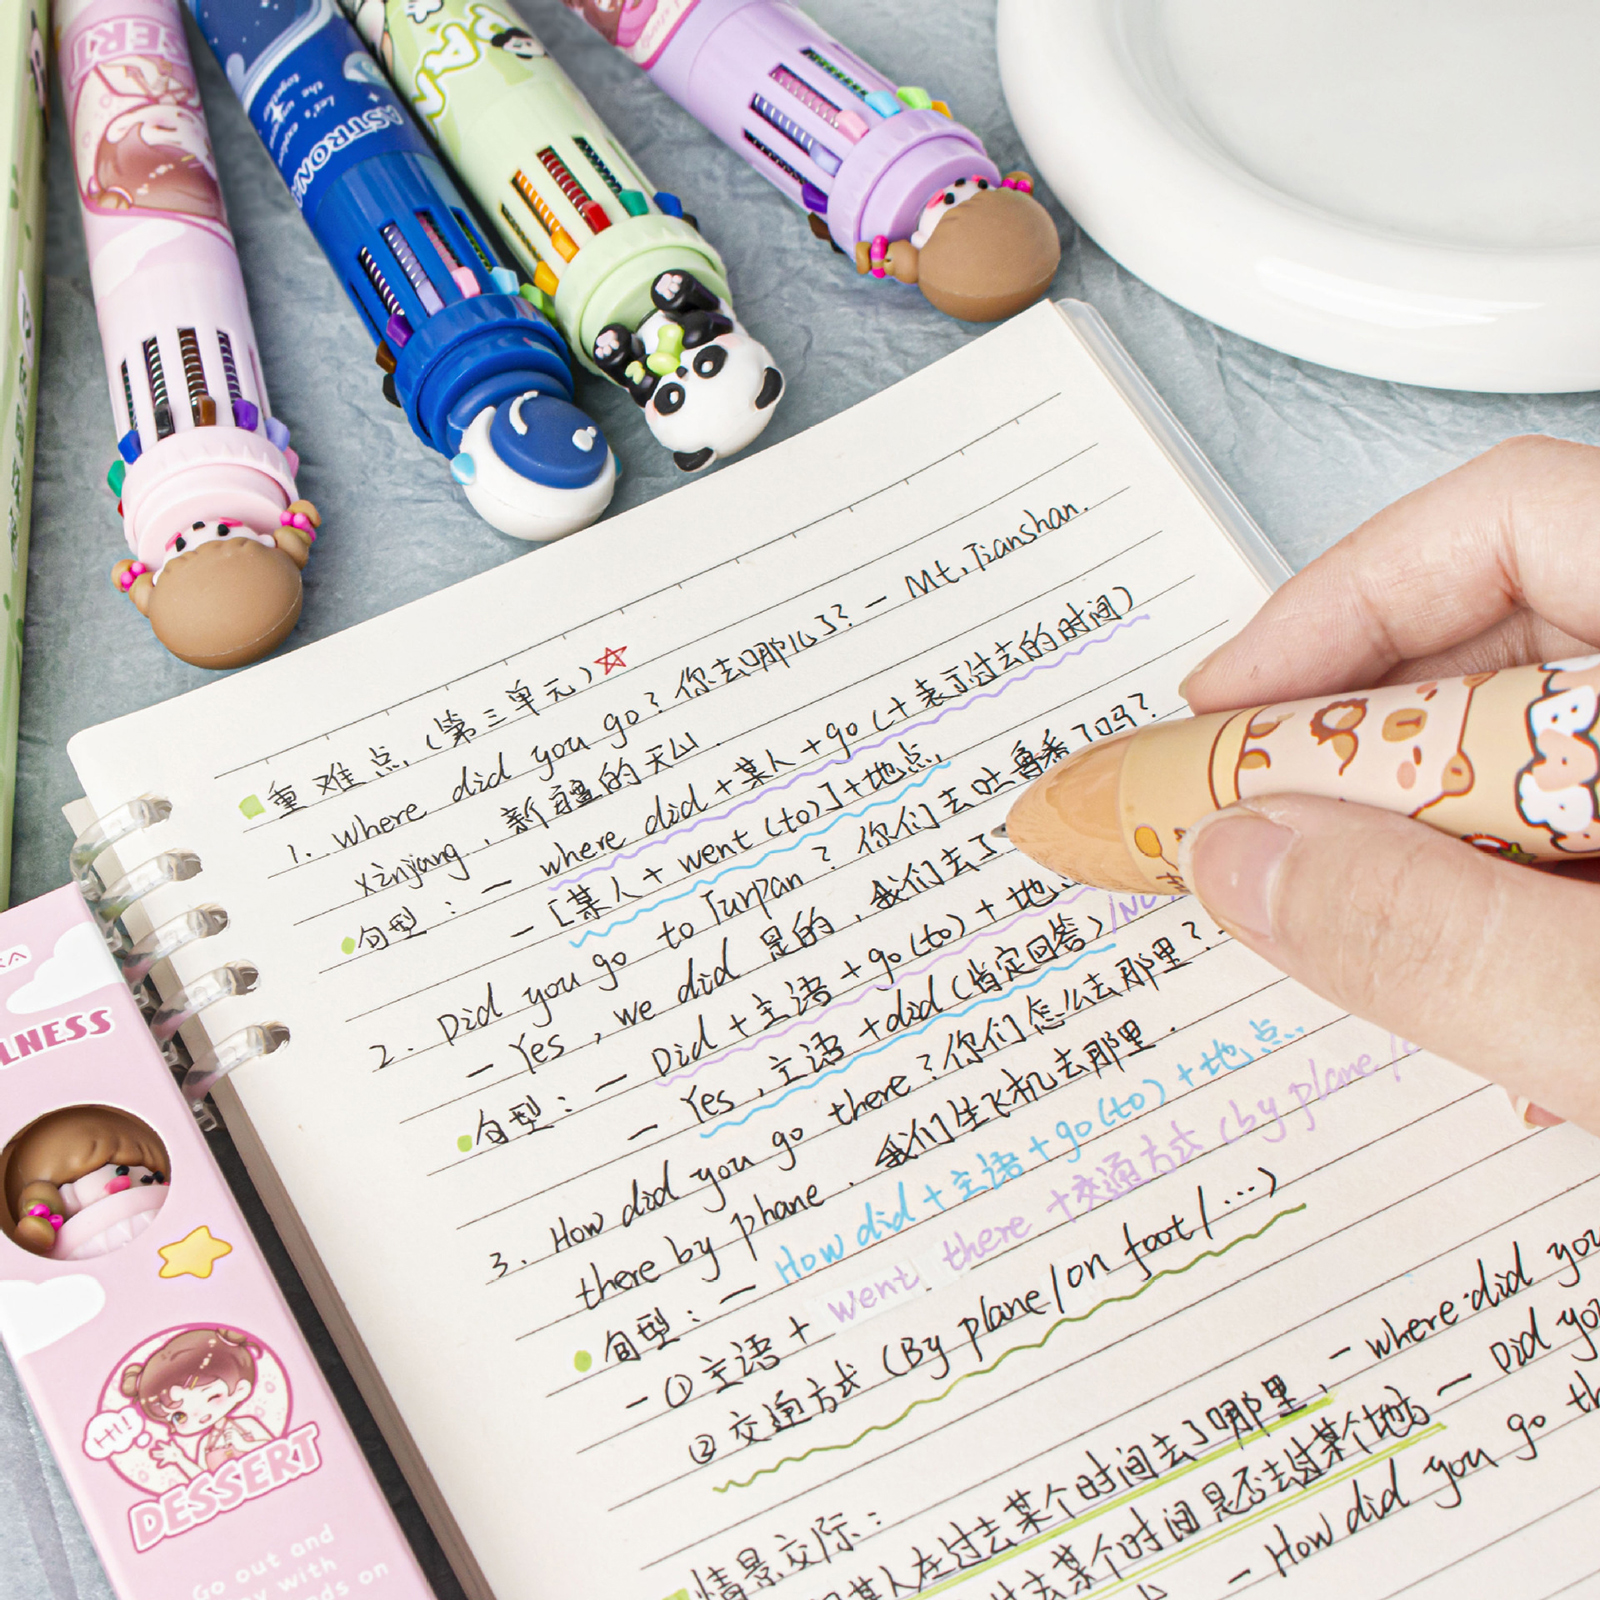 DESSERT
Let's explore
the universe
together
ASTRONA
重难点(第三单元)☆
1. Where did you go? 你去哪儿了? — Mt. Tianshan,
xinjiang, 新疆的天山.
句型: — where did + 某人 + go (+表示过去的时间)
— [某人 + went (to)] + 地点.
2. Did you go to Turpan? 你们去吐鲁番了吗?
— Yes, we did 是的, 我们去了
句型: — Did + 主语 + go (to) + 地
— Yes, 主语 + did (肯定回答)
3. How did you go there? 你们怎么去那里?
there by phane. 我们坐飞机去那里.
句型: — How did + 主语 + go (to) + 地点.
— ① 主语 + went there + 交通方式 (by plane /
② 交通方式 (By plane / on foot / ...)
情景交际:
某人在过去某个时间去了哪里, — where did you
过去某个时间是否去过某个地方 — Did you
— How did you go th
LNESS
HI!
DESSERT
Go out and
with
on